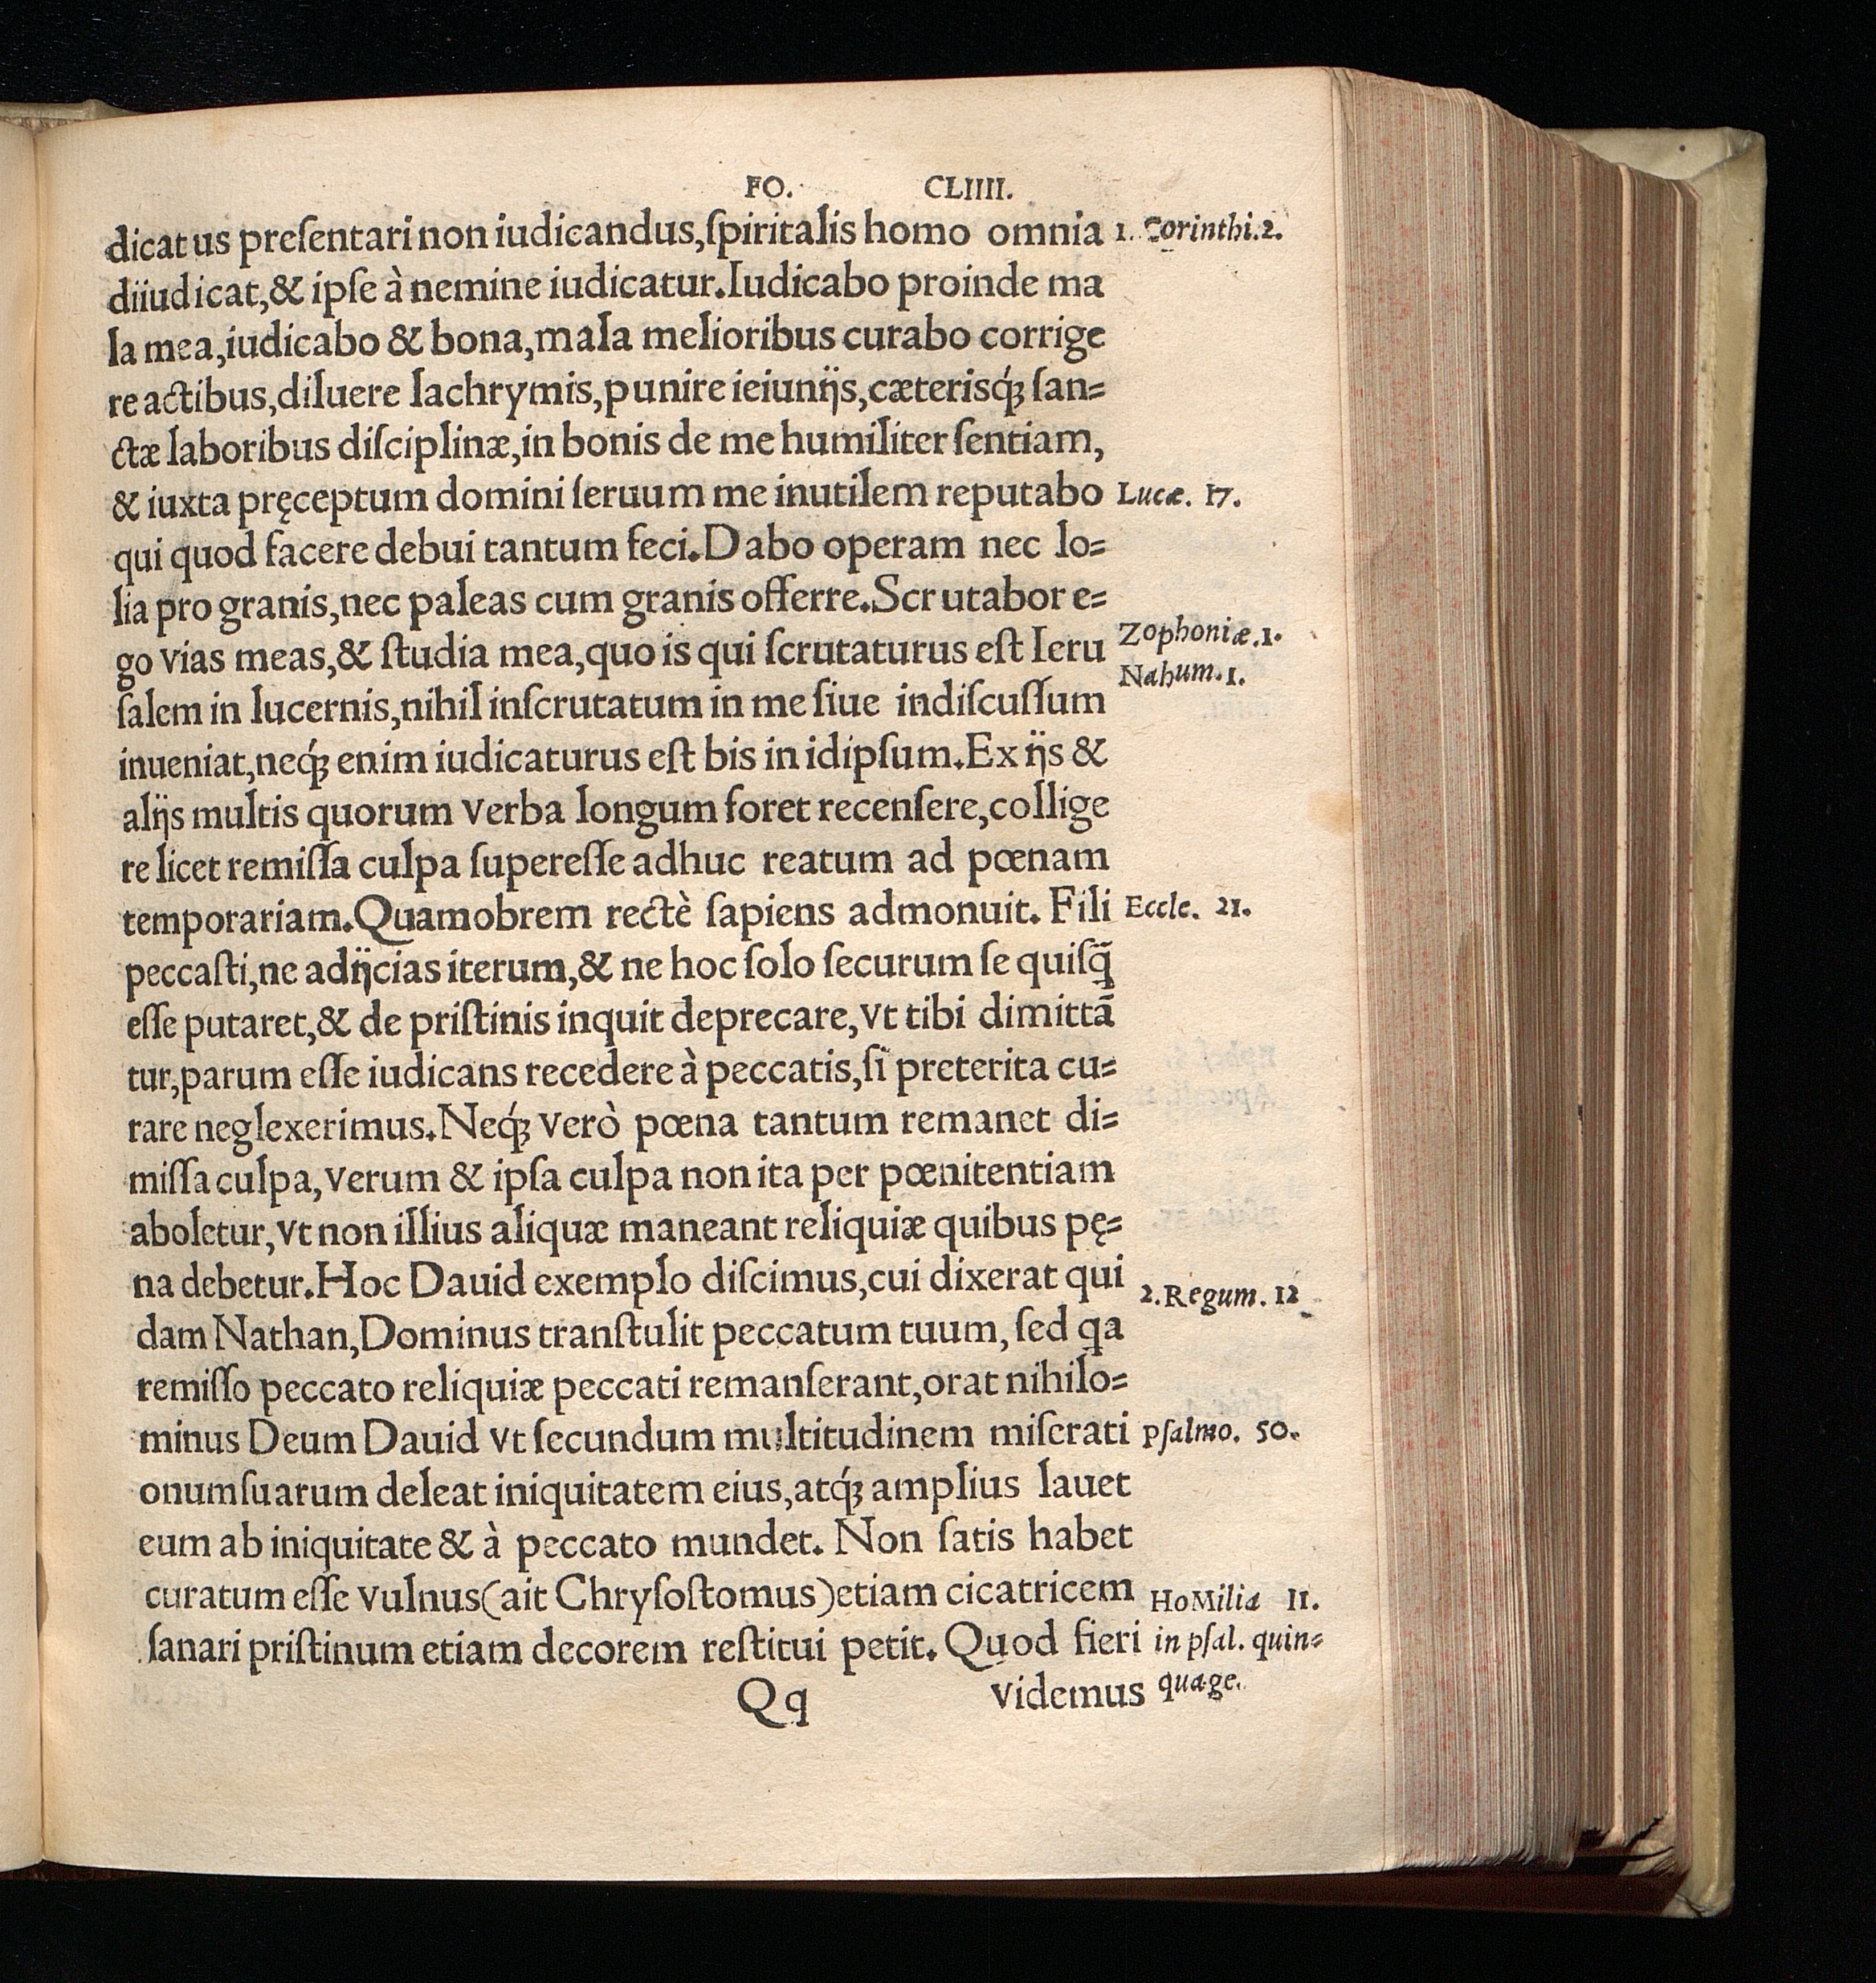 FO. CLIIII.
dicatus presentari non iudicandus, ſpiritalis homo omnia 1. Corinthi.2.
diiudicat,& ipſe à nemine iudicatur.Iudicabo proinde ma
la mea,iudicabo & bona,mala melioribus curabo corrige
re actibus,diluere lachrymis,punire ieiunijs,cæterisq́; ſan=
ctæ laboribus diſciplinæ,in bonis de me humiliter ſentiam,
& iuxta pręceptum domini ſeruum me inutilem reputabo Lucæ. 17.
qui quod facere debui tantum feci.Dabo operam nec lo=
lia pro granis,nec paleas cum granis offerre.Scrutabor e=
go vias meas,& ſtudia mea,quo is qui ſcrutaturus eſt Ieru Zophoniæ.1.
Nahum.1.
ſalem in lucernis,nihil inſcrutatum in me ſiue indiſcuſſum
inueniat,neq́; enim iudicaturus eſt bis in idipſum.Ex ijs &
alijs multis quorum verba longum foret recenſere,collige
re licet remiſſa culpa ſupereſſe adhuc reatum ad pœnam
temporariam.Quamobrem rectè ſapiens admonuit. Fili Eccle. 21.
peccaſti,ne adijcias iterum,& ne hoc ſolo ſecurum ſe quiſq̃
eſſe putaret,& de priſtinis inquit deprecare,vt tibi dimittã
tur,parum eſſe iudicans recedere à peccatis,ſi preterita cu=
rare neglexerimus.Neq́; verò pœna tantum remanet di=
miſſa culpa,verum & ipſa culpa non ita per pœnitentiam
aboletur,vt non illius aliquæ maneant reliquiæ quibus pę=
na debetur.Hoc Dauid exemplo diſcimus,cui dixerat qui 2.Regum. 12
dam Nathan,Dominus tranſtulit peccatum tuum, ſed qa
remiſſo peccato reliquiæ peccati remanſerant,orat nihilo=
minus Deum Dauid vt ſecundum multitudinem miſerati Pſalmo. 50.
onumſuarum deleat iniquitatem eius,atq́; amplius lauet
eum ab iniquitate & à peccato mundet. Non ſatis habet
curatum eſſe vulnus(ait Chryſoſtomus)etiam cicatricem HoMilia 11.
ſanari priſtinum etiam decorem reſtitui petit. Quod fieri in pſal. quin=
Qq videmus quage.